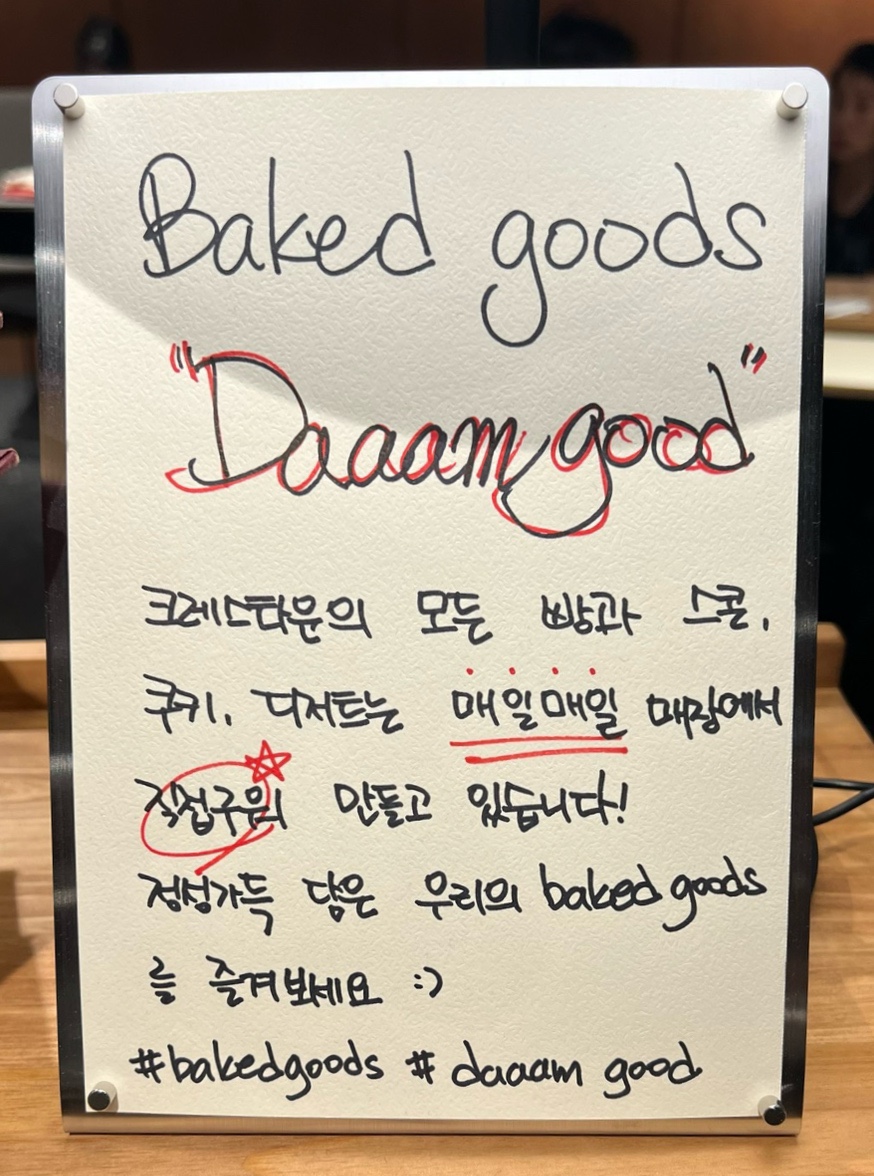 Baked goods
"Daaam good"
크레스타운의 모든 빵과 스콘,
쿠키, 디저트는 매일매일 매장에서
직접구워 만들고 있습니다!
정성가득 담은 우리의 baked goods
를 즐겨보세요 :)
#bakedgoods #daaam good